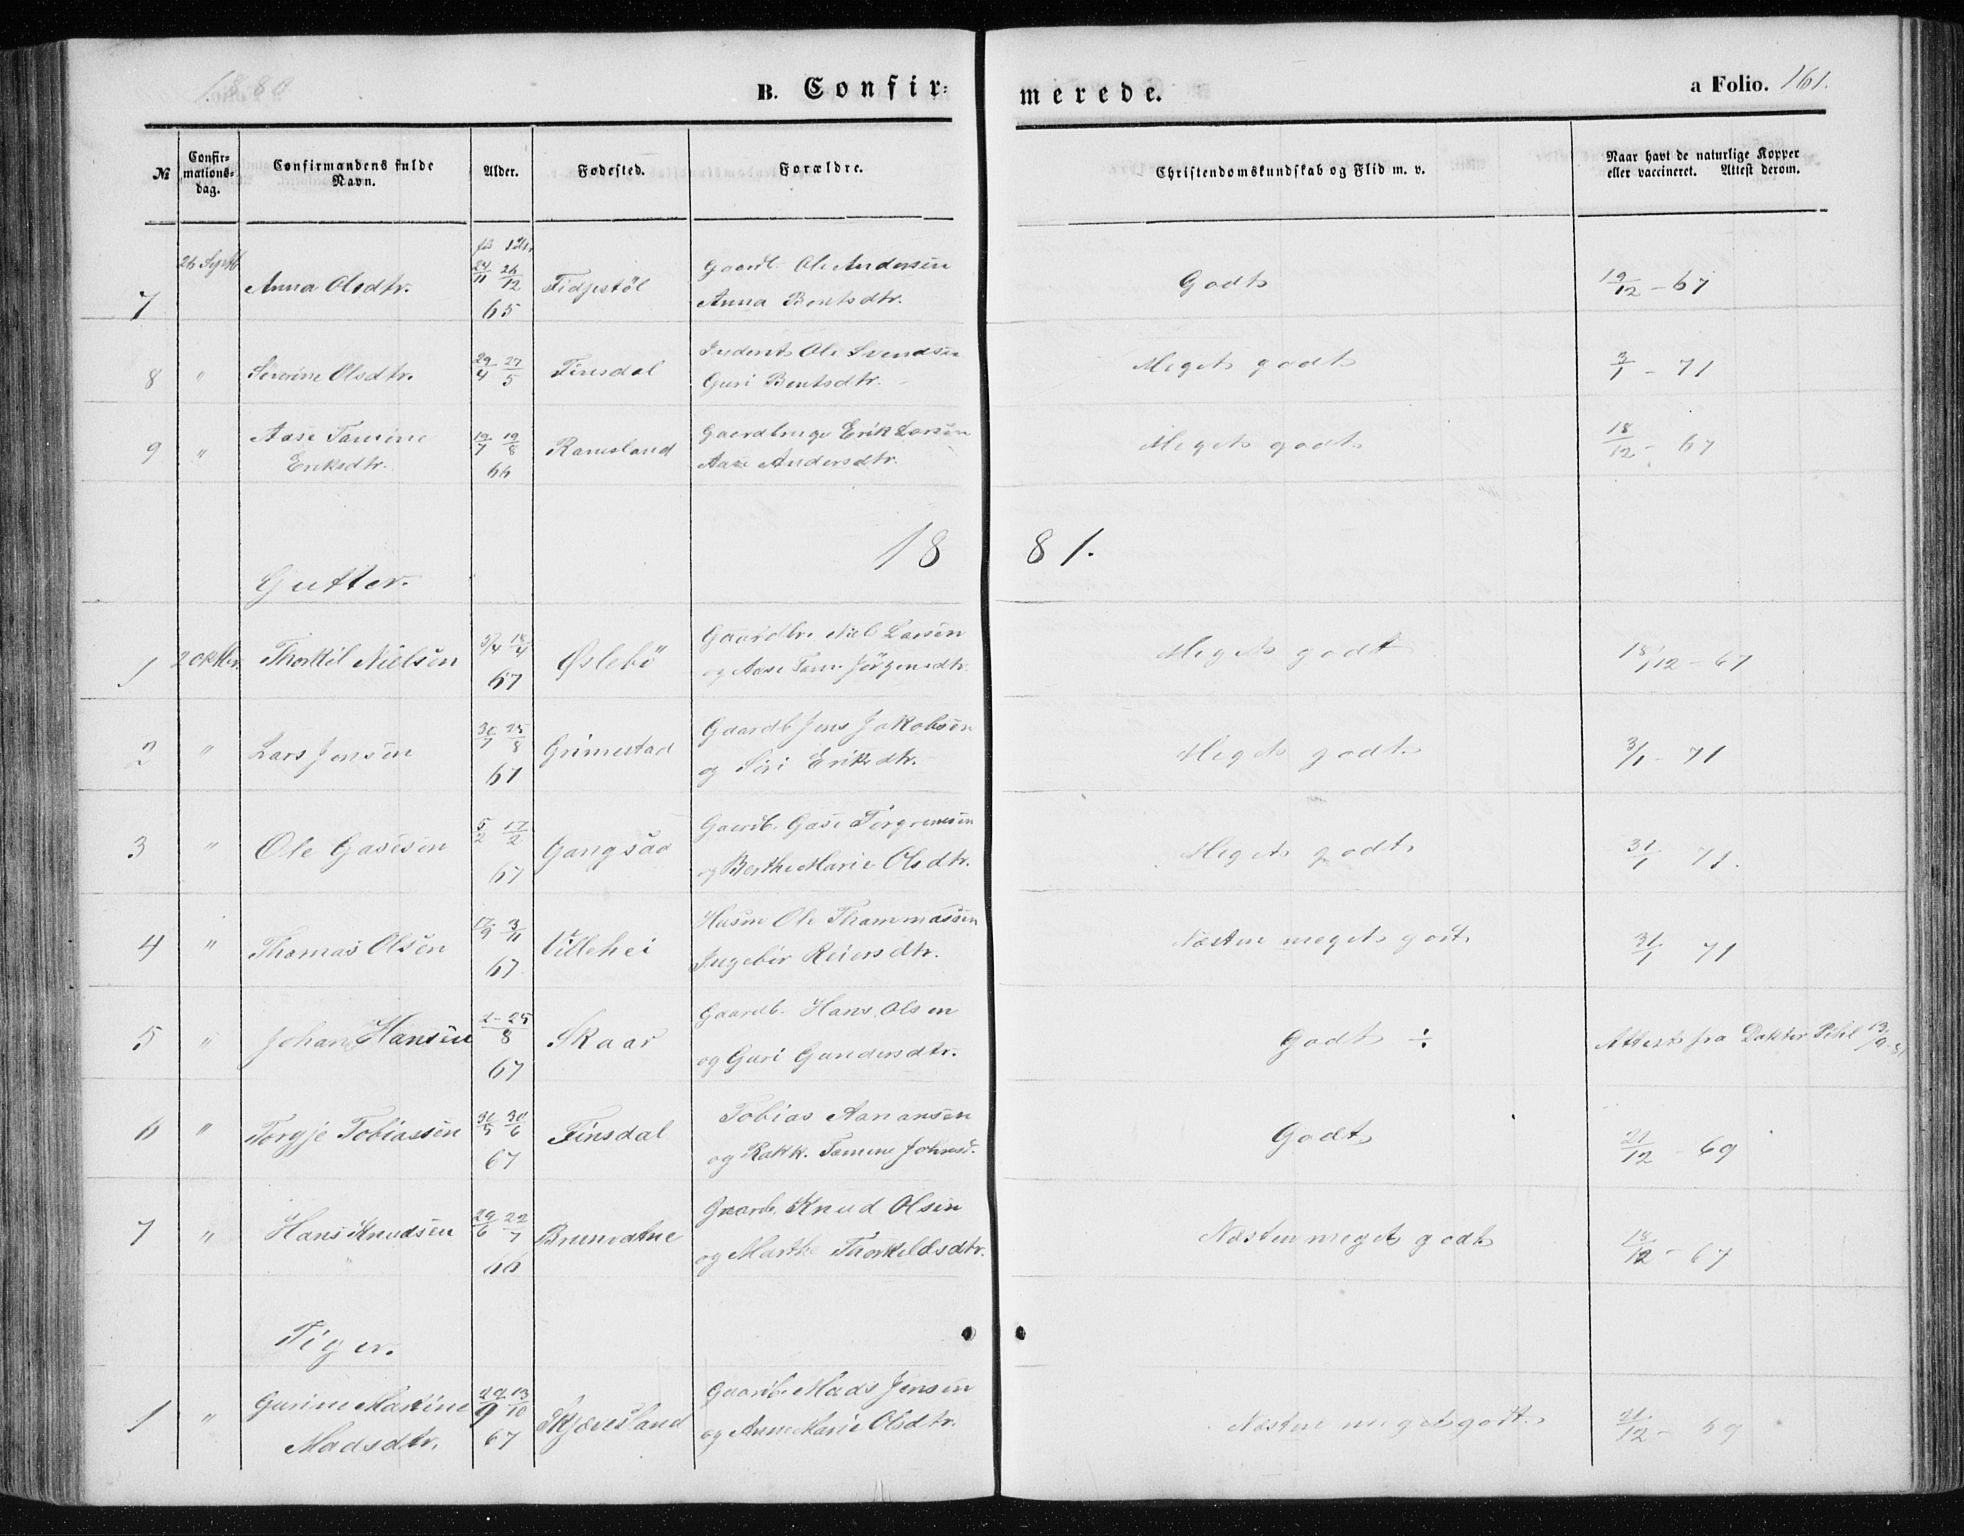 1880
B. Confir-
merede.
a Folio. 161.
№
Confir-
mations-
dag.
Confirmandens fulde
Navn.
Alder.
Fødested.
Forældre.
Christendomskundskab og Flid m. v.
Naar havt de naturlige Kopper
eller vaccineret. Attest derom.
7 26 Septb Anna Olsdtr. 24/11 26/12 65 Fidjestöl Gaardb. Ole Andersen
Anna Bentsdtr. Godt 19/12 - 67
8 " Söverine Olsdtr. 29/4 27/5 Finsdal Inderst Ole Svendsen
Guri Bentsdtr. Meget godt 3/1 - 71
9 " Aase Tamine
Eriksdtr. 12/7 19/8 66 Ramsland Gaardbruger Erik Larsen
Aase Andersdtr. Meget godt 18/12 - 67
18 81.
Gutter.
1 2 Oktbr. Thorkil Nielsen 5/4 18/4 67 Øslebö Gaardbr. Niel Larsen
og Aase Tam. Jörgensdtr. Meget godt 18/12 - 67
2 " Lars Jensen 30/7 25/8 67 Grimestad Gaardb Jens Jakobsen
og Siri Eriksdtr. Meget godt. 3/1 - 71
3 " Ole Gasesen 5/2 17/2 67 Gangsaa Gaardb. Gase Torgremsen
og Berthe Marie Olsdtr. Meget godt 31/1 71.
4 " Thomas Olsen 17/9 3/11 67. Villehei Husm Ole Thommassen
Ingebör Reiersdtr. Næsten meget godt. 31/1 71
5 " Johan Hansen 2 - 25/8 67 Skaar Gaardb. Hans Olsen
og Guri Gundersdtr. Godt ÷ Attest fra Doktor Pihl 13/9-81
6 " Torgje Tobiassen 30/5 30/6 67 Finsdal Tobias Aanansen
og Rakk. Tamine Johnsd. Godt 21/12 - 69
7 " Hans Knudsen 29/6 22/7 66 Brunvatne Gaardb. Knud Olsen
og Marthe Thorkildsdtr. Næsten meget godt 18/12 - 67
Piger.
1 " Gurine Martine
Madsdtr. 29/9 13/10 67 Kjævesland Gaardb. Mads Jensen
og Anne Marie Olsdtr. Næsten meget godt. 21/12 - 69